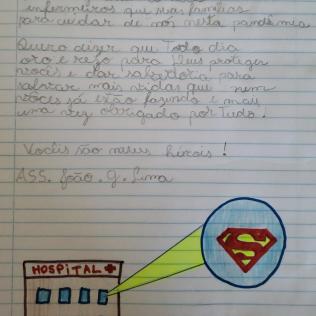 infermeiros que suas familias
para cuidar de nós nesta pandêmia
Quero dizer que Todo dia
oro e rezo para Deus proteger
vocês e dar sabedoria para
salvar mais vidas que nem
voces já estão fazendo e mais
uma vez obrigado por Tudo.
Vocês são meus heirois!
ASS. João. G. Lima
HOSPITAL
S